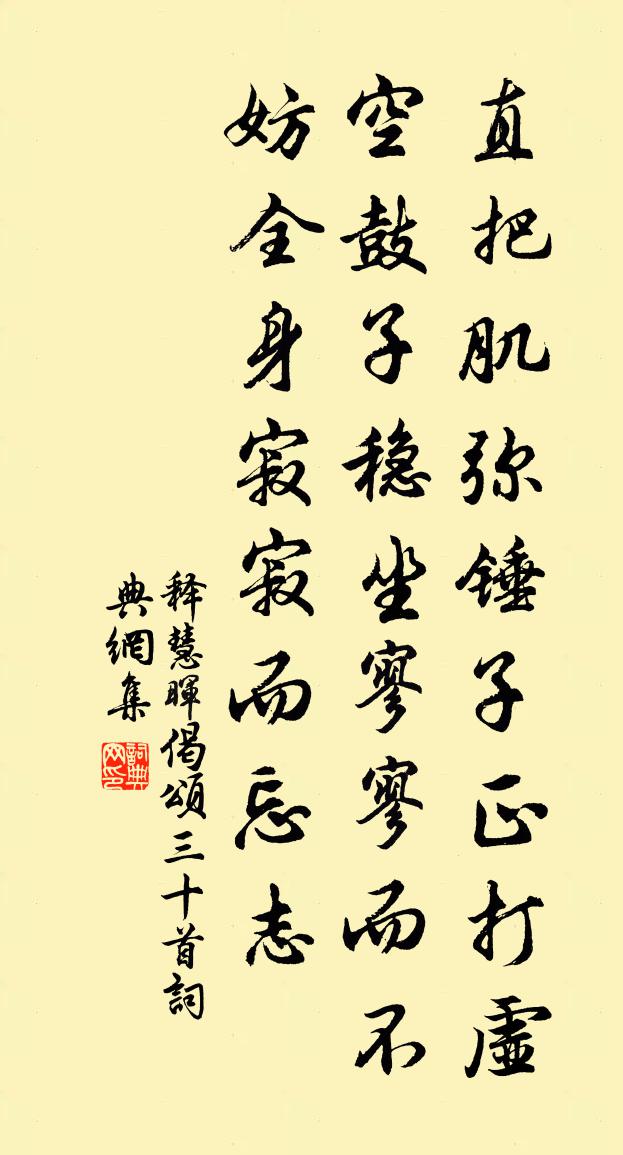 直把肌弥锤子正打虚
空鼓子稳坐寥寥而不
妨全身寂寂而忘志
释慧暉偈頌三十首詞
典網集
詞典
网印